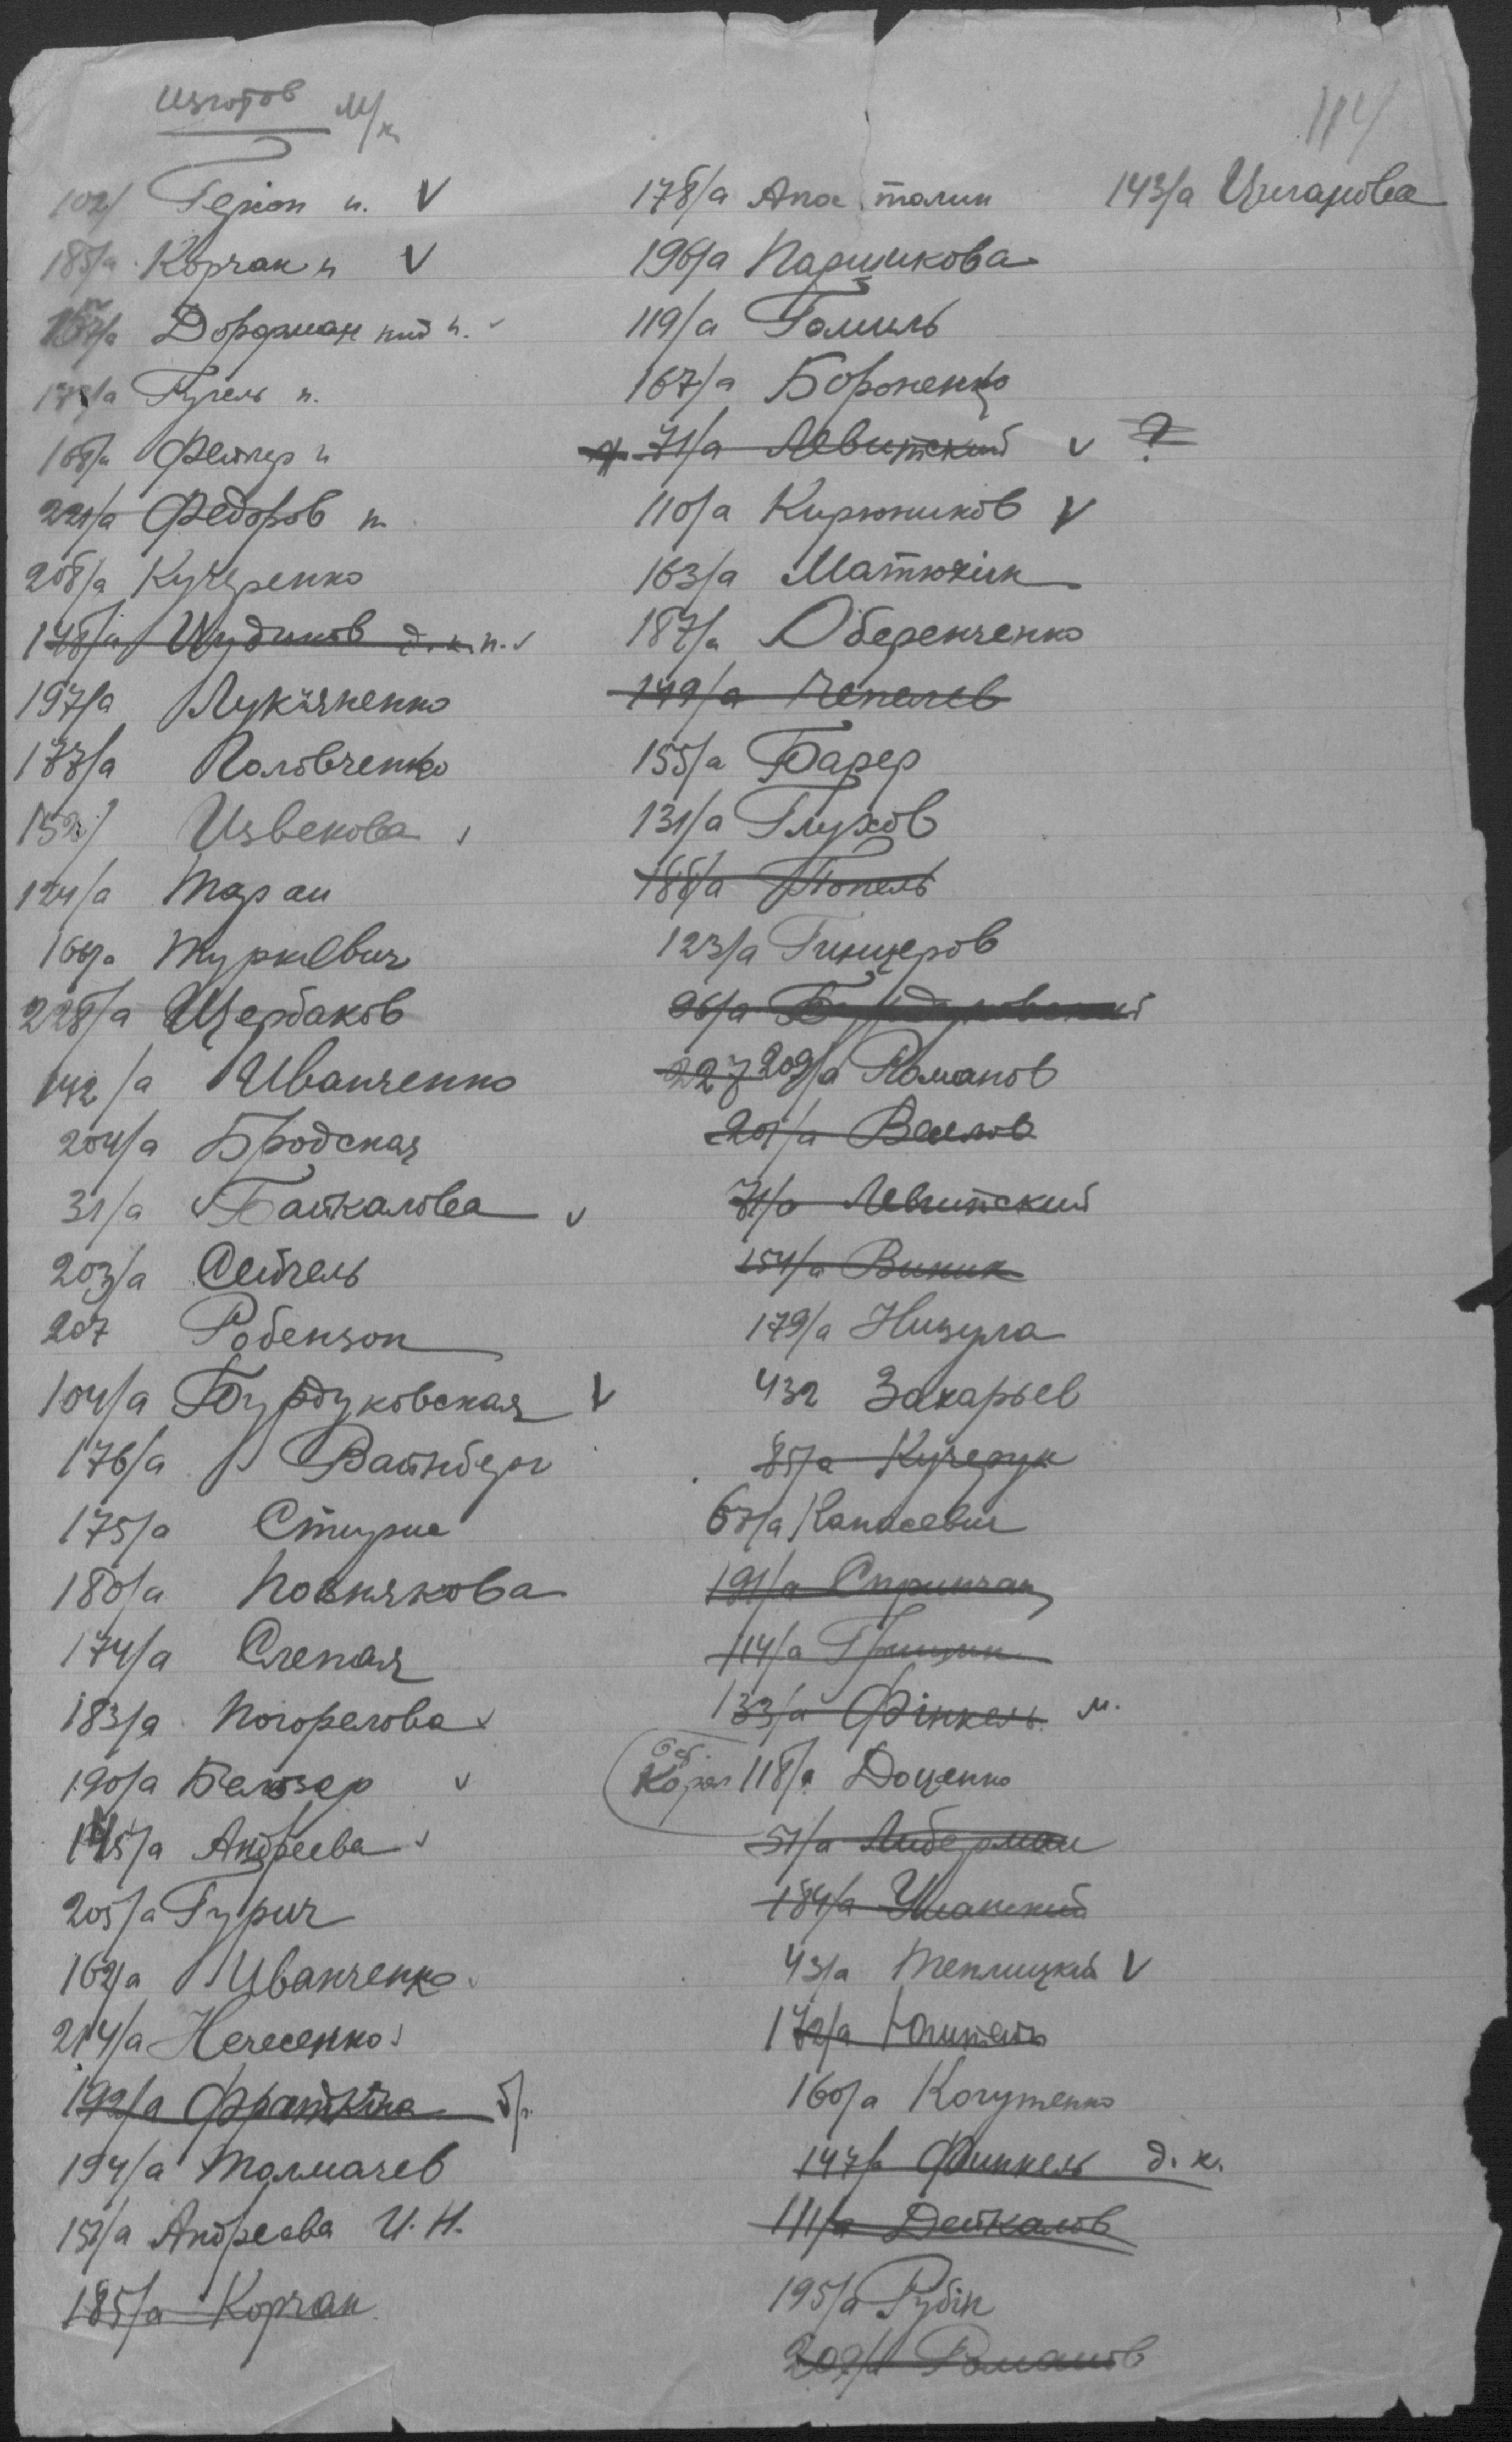 изготов м/к
114
102/ Геріон н. V
185/а Корчак н V
Дордиман кий н. v
Гугель н.
168/а Фейлер н
221/а Федоров н
208/а Кучеренко
148/а Шудиков д.к.н. v
197/а Лук'яненко
177/а Половченко
152/ Извекова v
124/а Таран
166/а Туркевич
228/а Щербаков
142/а Иванченко
204/а Бродская
31/а Байкалова v
203/а Сейгель
207 Робензон
104/а Бурдуковская V
176/а Вайнберг
175/а Стирне
180/а Познякова
174/а Слепая
183/а Погорелова v
190/а Белозер v
145/а Андреева v
205/а Гурич
162/а Иванченко v
214/а Нечесенко v
192/а Фрайкіна б/
194/а Толмачев
151/а Андреева И.Н.
185/а Корчак
178/а Апос талин
196/а Паршикова
119/а Гомель
167/а Бороненко
71/а Левитский v ?
110/а Кирюников V
163/а Матюхін
187/а Оберенченко
149/а Чепелев
155/а Барер
131/а Глухов
188/а Топель
123/а Гинцеров
96/а Бурдуковский
227 209/а Романов
201/а Венлов
71/а Левитский
154/а Виник
179/а Низула
432 Захарьев
85/а Кучерук
67/а Канасевич
191/а Спринчан
114/а Грицин
133/а Фінкель м.
Корал 118/а Доценко
51/а Либерман
184/а Уманский
43/а Теплицкий V
172/а Юнитель
160/а Когутенко
147/а Финкель д.к.
111/а Дейкалов
195/а Рубін
209/а Романов
143/а Циганова